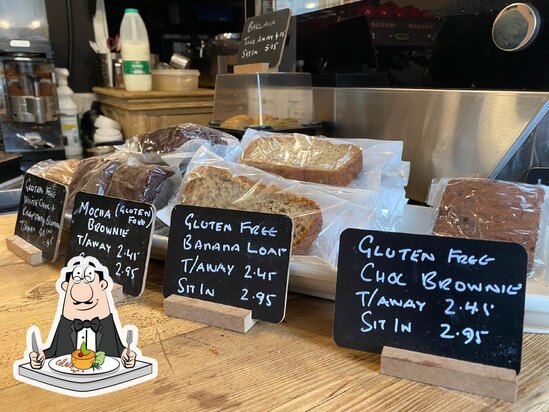 BAKLAVA
TAKE AWAY
SIT IN 5.15
GLUTEN FREE
WHITE CHOC &
T/AWAY
MOCHA (GLUTEN FREE)
BROWNIE
T/AWAY 2.45
2.95
GLUTEN FREE
BANANA LOAF
T/AWAY 2.45
SIT IN 2.95
GLUTEN FREE
CHOC BROWNIE
T/AWAY 2.45
SIT IN 2.95